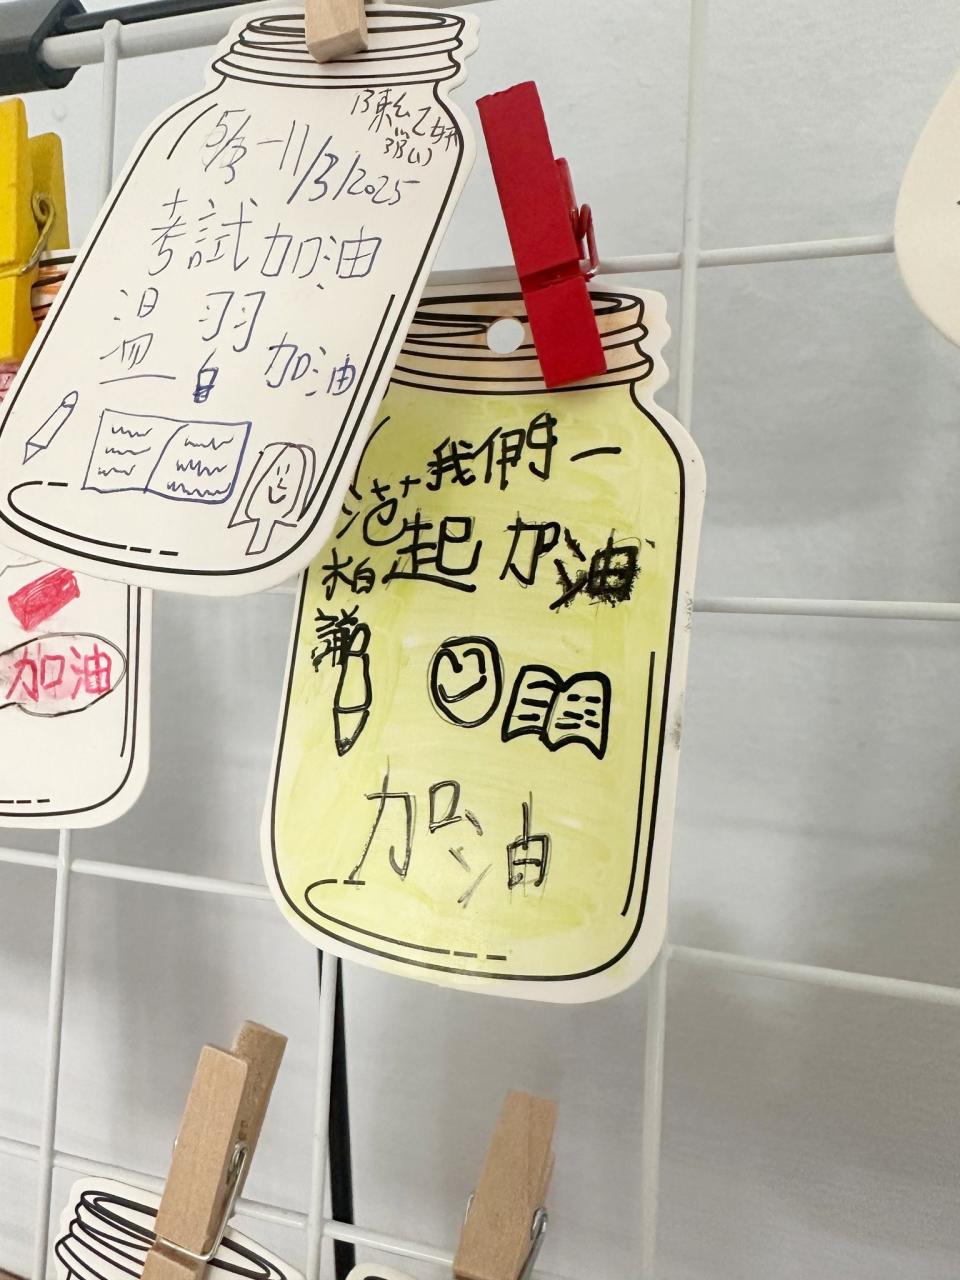 陳乙妍
3B(1)
5/3-11/3/2025
考試加油
温習
加油
我們一
起加油
范柏
加油
加油